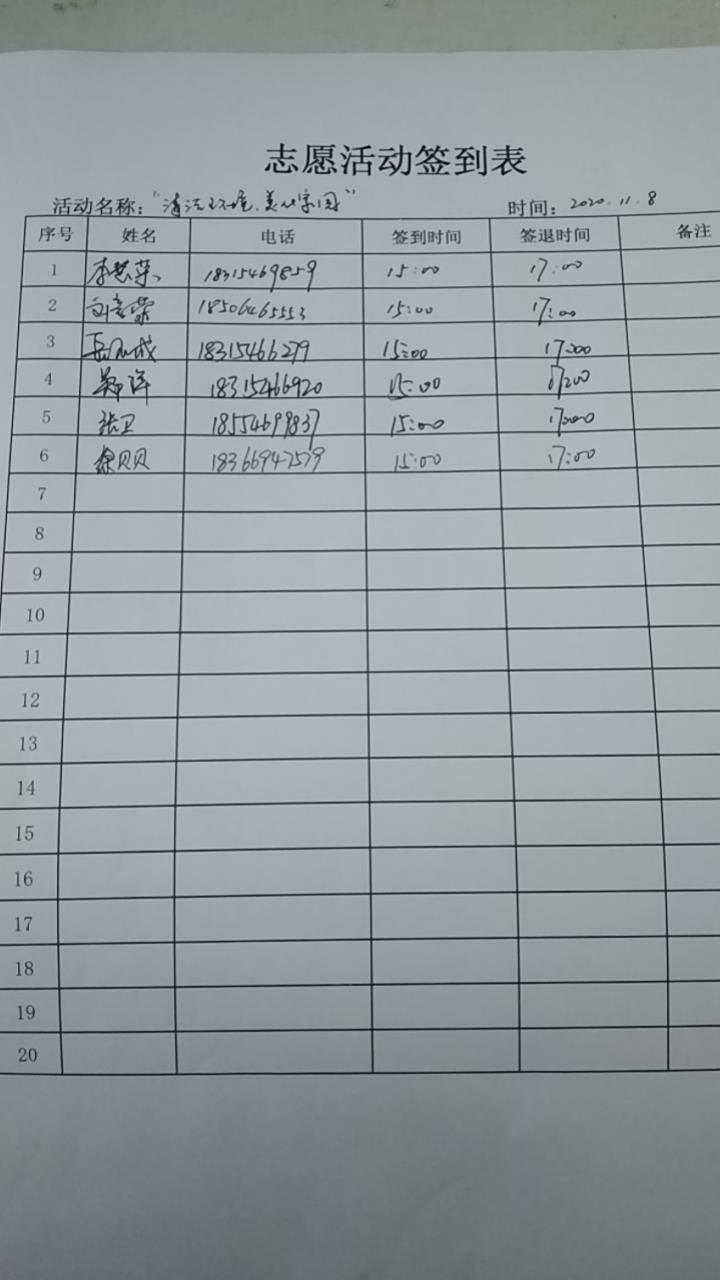 志愿活动签到表
活动名称："清洁环境.美化家园" 时间：2020.11.8
序号 姓名 电话 签到时间 签退时间 备注
1 李慧荣 18315469859 15:00 17:00
2 18506465553 15:00 17:00
3 18315466279 15:00 17:00
4 郭洋 18315466920 15:00 17:00
5 张卫 18554699837 15:00 17:00
6 徐贝贝 18366947579 15:00 17:00
7
8
9
10
11
12
13
14
15
16
17
18
19
20